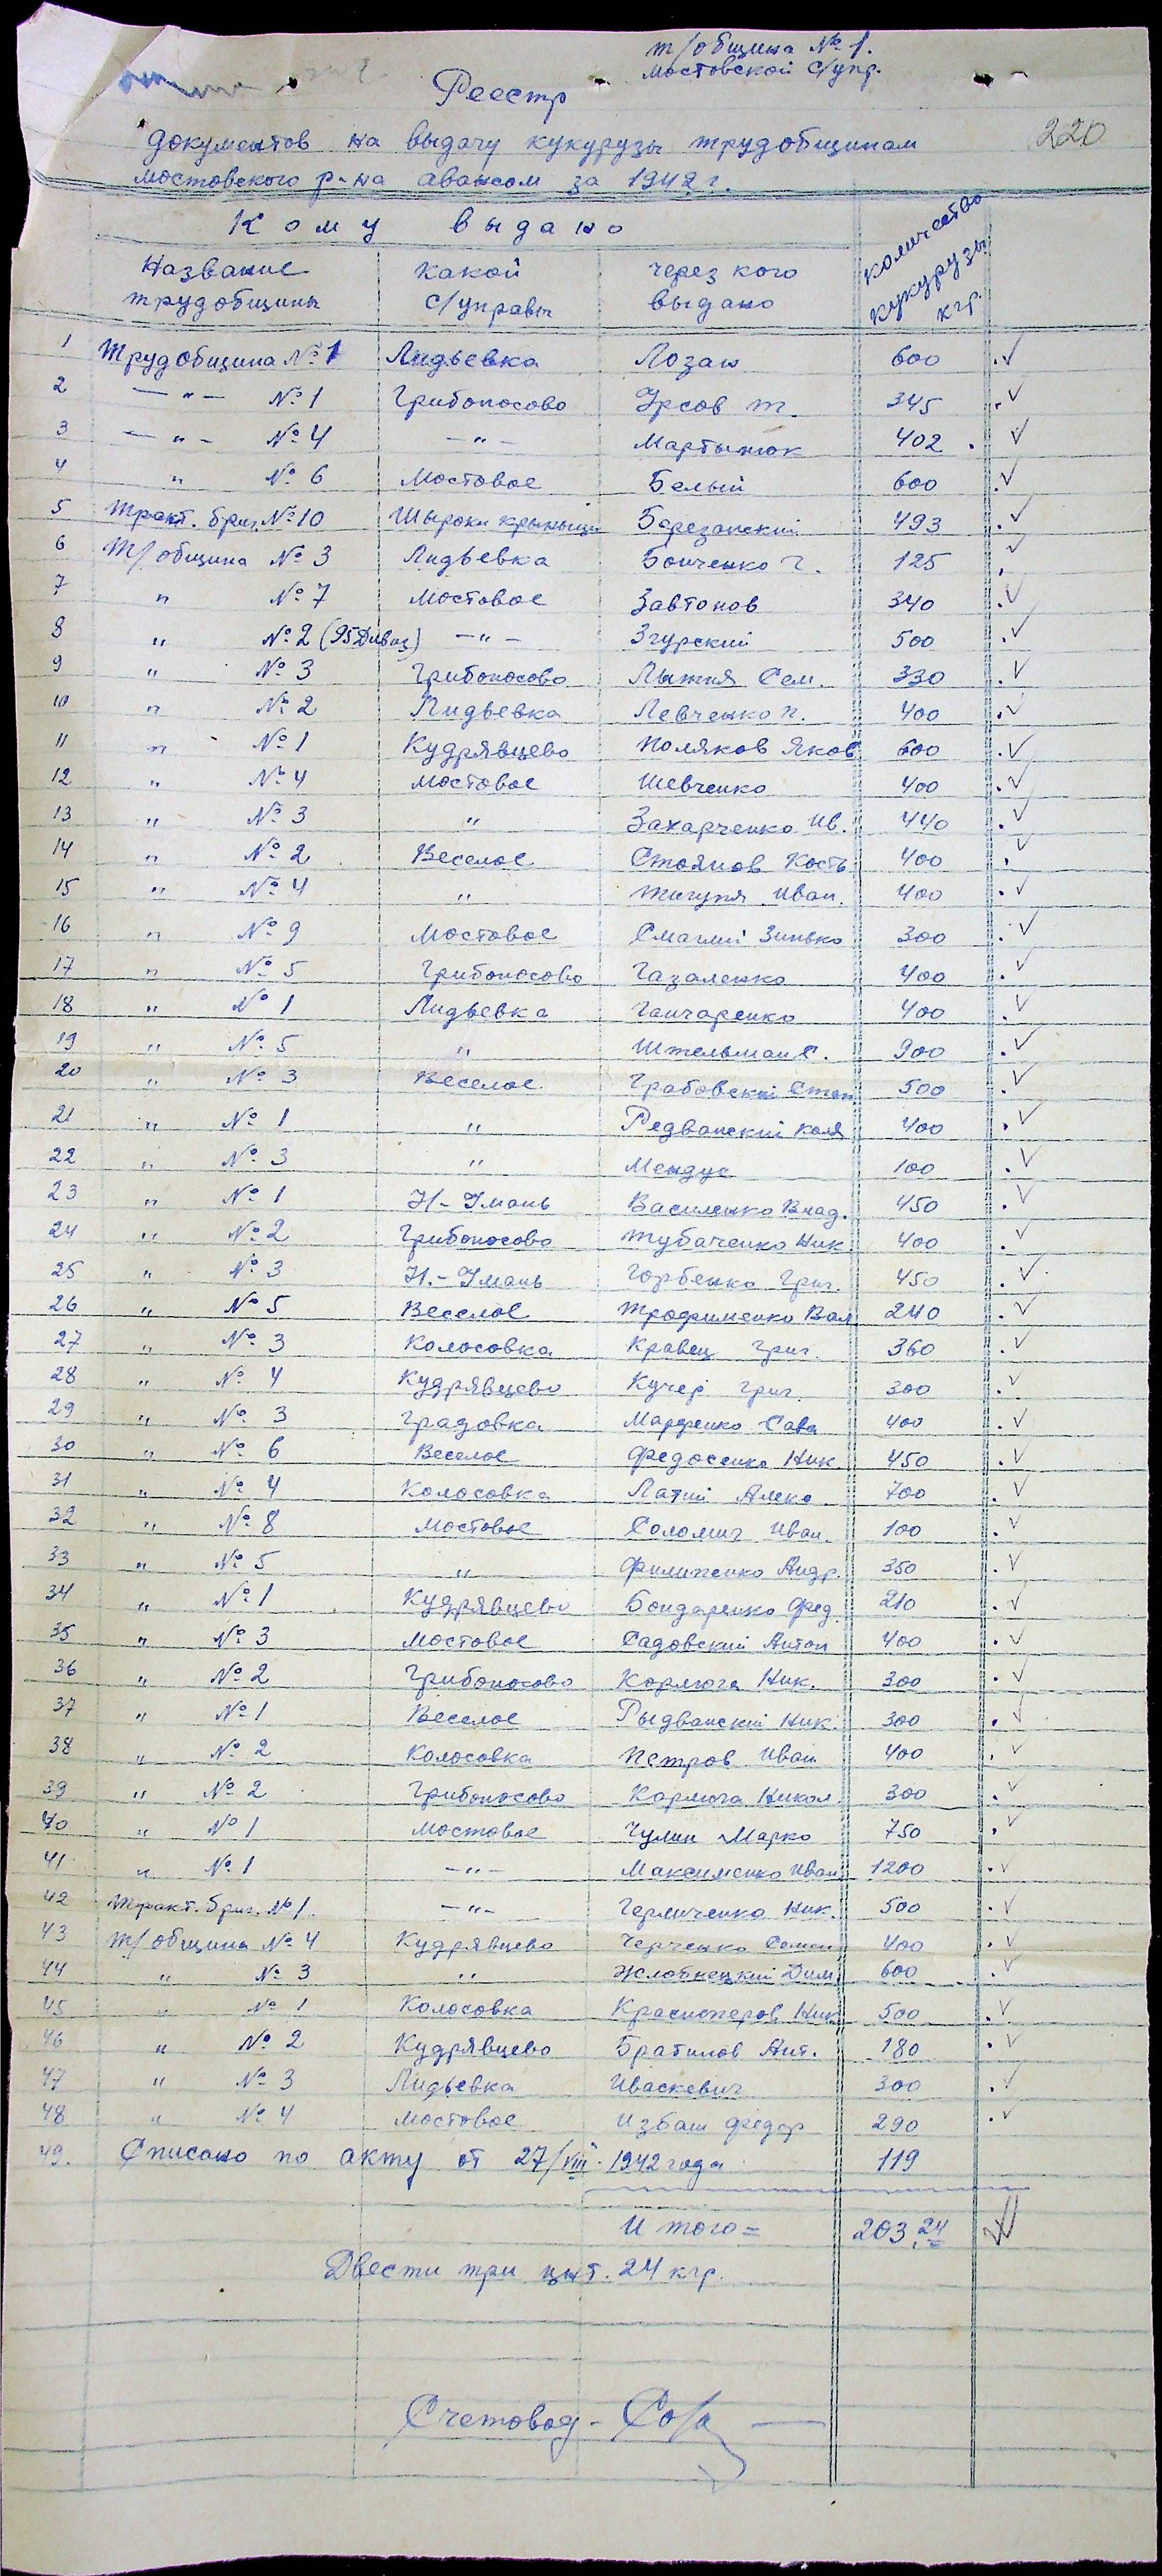 т/община № 1.
Мостовской с/упр.
Реестр
220
документов на выдачу кукурузы трудобщинам
мостовского р-на авансом за 1942 г.
Кому выдано
количество кукурузы кгр.
Название трудобщины какой с/управы через кого выдано
1 Трудобщина № 1 Лидьевка Лозан 600 ✓
2 —"— № 1 Грибоносово Урсов т. 345 ✓
3 —"— № 4 —"— Мартынюк 402 ✓
4 " № 6 Мостовое Белый 600 ✓
5 Тракт. бриг. № 10 Широки крыницы Березанский 493 ✓
6 Т/община № 3 Лидьевка Бойченко Г. 125 ✓
7 " № 7 Мостовое Завтонов 340 ✓
8 " № 2 (95 Дивиз) —"— Згурский 500 ✓
9 " № 3 Грибоносово Лыжня Сем. 330 ✓
10 " № 2 Лидьевка Левченко П. 400 ✓
11 " № 1 Кудрявцево Поляков Яков 600 ✓
12 " № 4 Мостовое Шевченко 400 ✓
13 " № 3 " Захарченко Ив. 440 ✓
14 " № 2 Веселое Стоянов Кость 400 ✓
15 " № 4 " Жигуня Иван. 400 ✓
16 " № 9 Мостовое Смаглий Зинько 300 ✓
17 " № 5 Грибоносово Газаленко 400 ✓
18 " № 1 Лидьевка Ганчаренко 400 ✓
19 " № 5 " Штельман С. 900 ✓
20 " № 3 Веселое Грабовский Степ 500 ✓
21 " № 1 " Редванский Коля 400 ✓
22 " № 3 " Мендус 100 ✓
23 " № 1 Н-Умань Василенко Влад. 450 ✓
24 " № 2 Грибоносово Тубаченко Ник 400 ✓
25 " № 3 Н.-Умань Горбенко Григ. 450 ✓
26 " № 5 Веселое Трофименко Вал 240 ✓
27 " № 3 Колосовка Кравец Григ. 360 ✓
28 " № 4 Кудрявцево Кучер Григ. 300 ✓
29 " № 3 Градовка Марфенко Сава 400 ✓
30 " № 6 Веселое Федосенко Ник. 450 ✓
31 " № 4 Колосовка Латий Алеко. 700 ✓
32 " № 8 Мостовое Соломич Иван. 100 ✓
33 " № 5 " Филипенко Андр. 350 ✓
34 " № 1 Кудрявцево Бондаренко Фед. 210 ✓
35 " № 3 Мостовое Садовский Антон 400 ✓
36 " № 2 Грибоносово Кормюга Ник. 300 ✓
37 " № 1 Веселое Рыдванский Ник. 300 ✓
38 " № 2 Колосовка Петров Иван 400 ✓
39 " № 2 Грибоносово Кормюга Никол. 300 ✓
40 " № 1 Мостовое Чулин Марко 750 ✓
41 " № 1 —"— Максименко Иван 1200 ✓
42 Тракт. бриг. № 1. —"— Герличенко Ник. 500 ✓
43 Т/община № 4 Кудрявцево Черченко Семен 400 ✓
44 " № 3 " Жлобнецкий Дим. 600 ✓
45 " № 1 Колосовка Красноперов Ник 500 ✓
46 " № 2 Кудрявцево Братилов Ант. 180 ✓
47 " № 3 Лидьевка Иваскевич 300 ✓
48 " № 4 Мостовое Избаш Федор 290 ✓
49. Списано по акту от 27/VIII. 1942 года 119
Итого = 203,24
Двести три цнт. 24 кгр.
Счетовод -